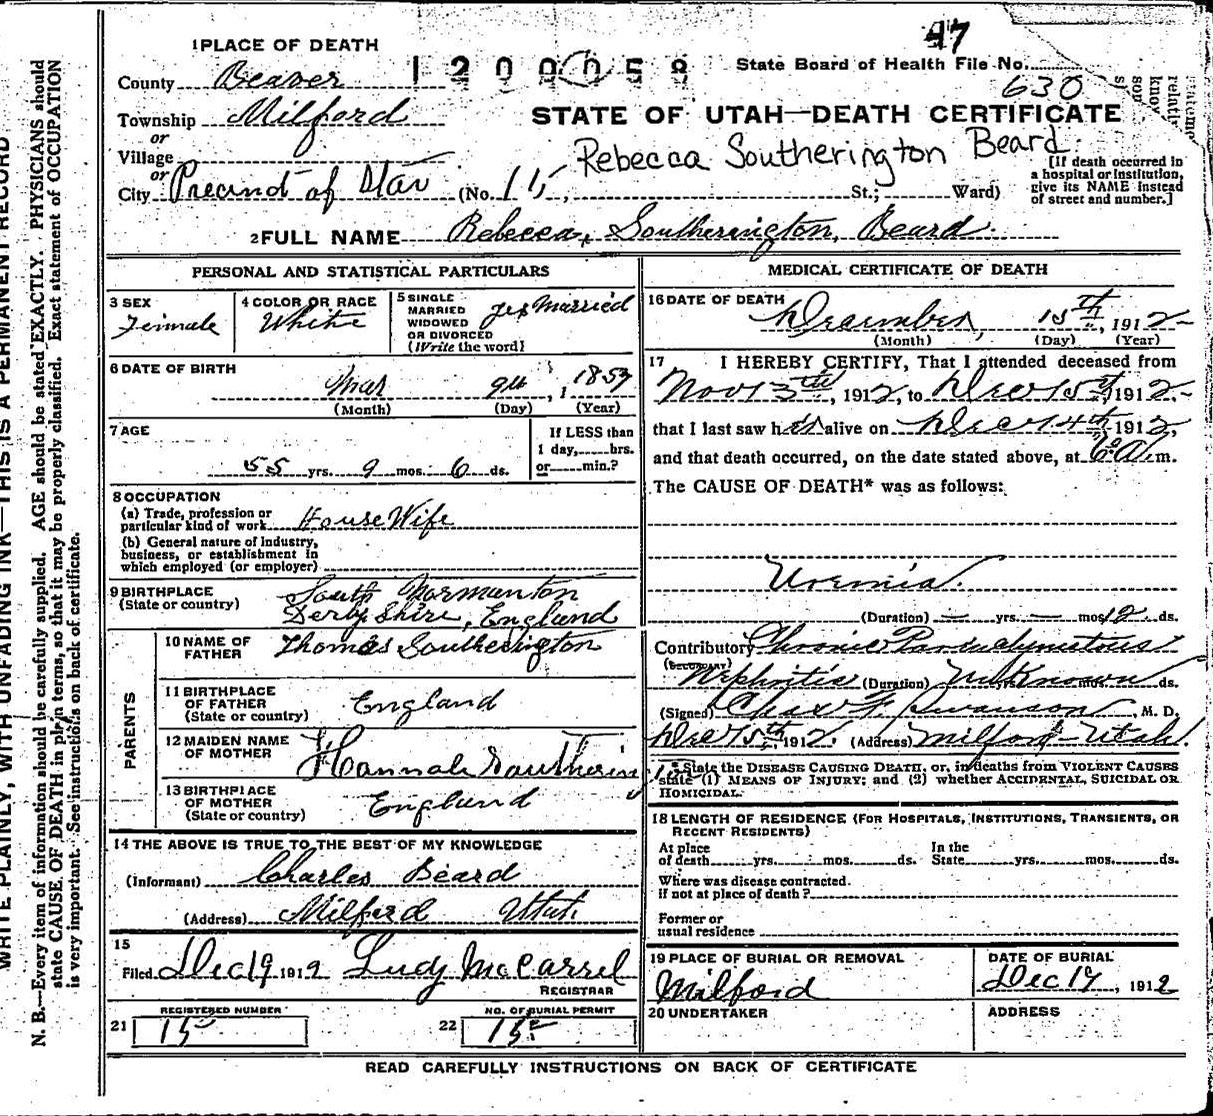 WRITE PLAINLY, WITH UNFADING INK—THIS IS A PERMANENT RECORD
N. B.—Every item of information should be carefully supplied. AGE should be stated EXACTLY. PHYSICIANS should
state CAUSE OF DEATH in plain terms, so that it may be properly classified. Exact statement of OCCUPATION
is very important. See instructions on back of certificate.
1 PLACE OF DEATH
47
County Beaver
State Board of Health File No.
630
Township Milford
or
STATE OF UTAH—DEATH CERTIFICATE
Village
or
Rebecca Southerington Beard
City Precinct of Star (No. 11, St.; Ward)
[If death occurred in
a hospital or institution,
give its NAME instead
of street and number.]
2 FULL NAME Rebecca, Southerington, Beard
PERSONAL AND STATISTICAL PARTICULARS
3 SEX
Feimale
4 COLOR OR RACE
White
5 SINGLE
MARRIED
WIDOWED
OR DIVORCED
(Write the word)
yes Married
6 DATE OF BIRTH
Mar 9th, 1857
(Month) (Day) (Year)
7 AGE
55 yrs. 9 mos. 6 ds.
If LESS than
1 day, hrs.
or min.?
8 OCCUPATION
(a) Trade, profession or
particular kind of work House Wife
(b) General nature of industry,
business, or establishment in
which employed (or employer)
9 BIRTHPLACE
(State or country)
South Normunton
Derby Shire, England
PARENTS
10 NAME OF
FATHER
Thomas Southerington
11 BIRTHPLACE
OF FATHER
(State or country)
England
12 MAIDEN NAME
OF MOTHER
Hannah
13 BIRTHPLACE
OF MOTHER
(State or country)
England
14 THE ABOVE IS TRUE TO THE BEST OF MY KNOWLEDGE
(Informant) Charles Beard
(Address) Milford Utah.
15
Filed Dec 19 1912 Ludy McCarrel
REGISTRAR
REGISTERED NUMBER
21 15
NO. OF BURIAL PERMIT
22 15
MEDICAL CERTIFICATE OF DEATH
16 DATE OF DEATH
December, 15th, 1912
(Month) (Day) (Year)
17 I HEREBY CERTIFY, That I attended deceased from
Nov 3th, 1912, to Dec 15th, 1912.
that I last saw her alive on Dec 14th, 1912,
and that death occurred, on the date stated above, at 6 A. m.
The CAUSE OF DEATH* was as follows:
Uremia.
(Duration) — yrs. — mos. 12 ds.
Contributory Chronic Parenchymatous
(SECONDARY)
Nephritis (Duration) Unknown yrs. mos. ds.
(Signed) Chas F. Swanson M. D.
Dec 15th, 1912. (Address) Milford Utah.
*State the DISEASE CAUSING DEATH, or, in deaths from VIOLENT CAUSES
state (1) MEANS OF INJURY; and (2) whether ACCIDENTAL, SUICIDAL OR
HOMICIDAL.
18 LENGTH OF RESIDENCE (FOR HOSPITALS, INSTITUTIONS, TRANSIENTS, OR
RECENT RESIDENTS)
At place
of death yrs. mos. ds.
In the
State yrs. mos. ds.
Where was disease contracted.
if not at place of death?
Former or
usual residence
19 PLACE OF BURIAL OR REMOVAL
Milford
DATE OF BURIAL
Dec 17, 1912
20 UNDERTAKER
ADDRESS
READ CAREFULLY INSTRUCTIONS ON BACK OF CERTIFICATE